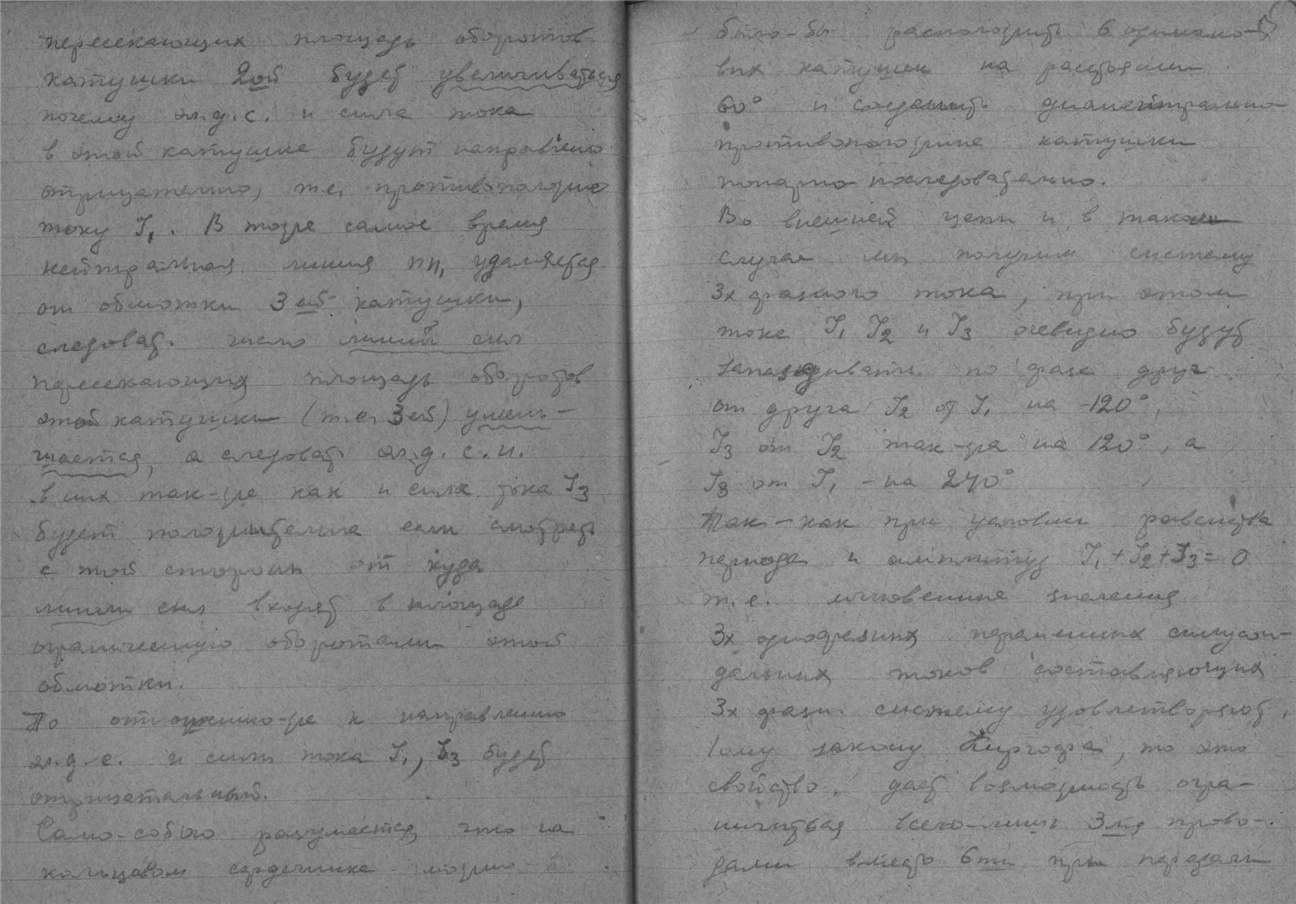 пересекающих площадь оборотов
катушки 2ой будет увеличиваться
почему эл.д.с. и сила тока
в этой катушке будут направлены
отрицательно, т.е. противоположно
току I₁. В тоже самое время
нейтральная линия nn₁ удаляется
от обмотки 3ей катушки,
следоват. число линий сил
пересекающих площадь оборотов
этой катушки (т.е. 3ей) умень-
шается, а следоват. эл.д.с. и.
в них так-же как и сила тока I₃
будет положительна если смотреть
с той стороны от куда
линии сил входят в площадь
ограниченную оборотами этой
обмотки.
По отношению-же к направлению
эл.д.с. и силы тока I₁, I₃ будет
отрицательный.
Само-собою разумеется что на
кольцевом сердечнике можно
было-бы расположить 6 одинако-
вых катушек на расстоянии
60° и соединить диаметрально
противоположные катушки
попарно последовательно.
Во внешней цепи и в таком
случае мы получим систему
3х фазного тока, при этом
токи I₁ I₂ и I₃ очевидно будут
запаздывать по фазе друг
от друга I₂ от I₁ на -120°,
I₃ от I₂ так-же на 120°, а
I₃ от I₁ - на 240°
Так-как при условии равенства
периода и амплитуд I₁+I₂+I₃=0
т.е. мгновенные значения
3х однофазных переменных синусои-
дальных токов составляющих
3х фазн. систему удовлетворяют
1ому закону Кирхгофа, то это
свойство дает возможность огра-
ничиться всего-лишь 3мя прово-
дами вместо 6ти при передачи